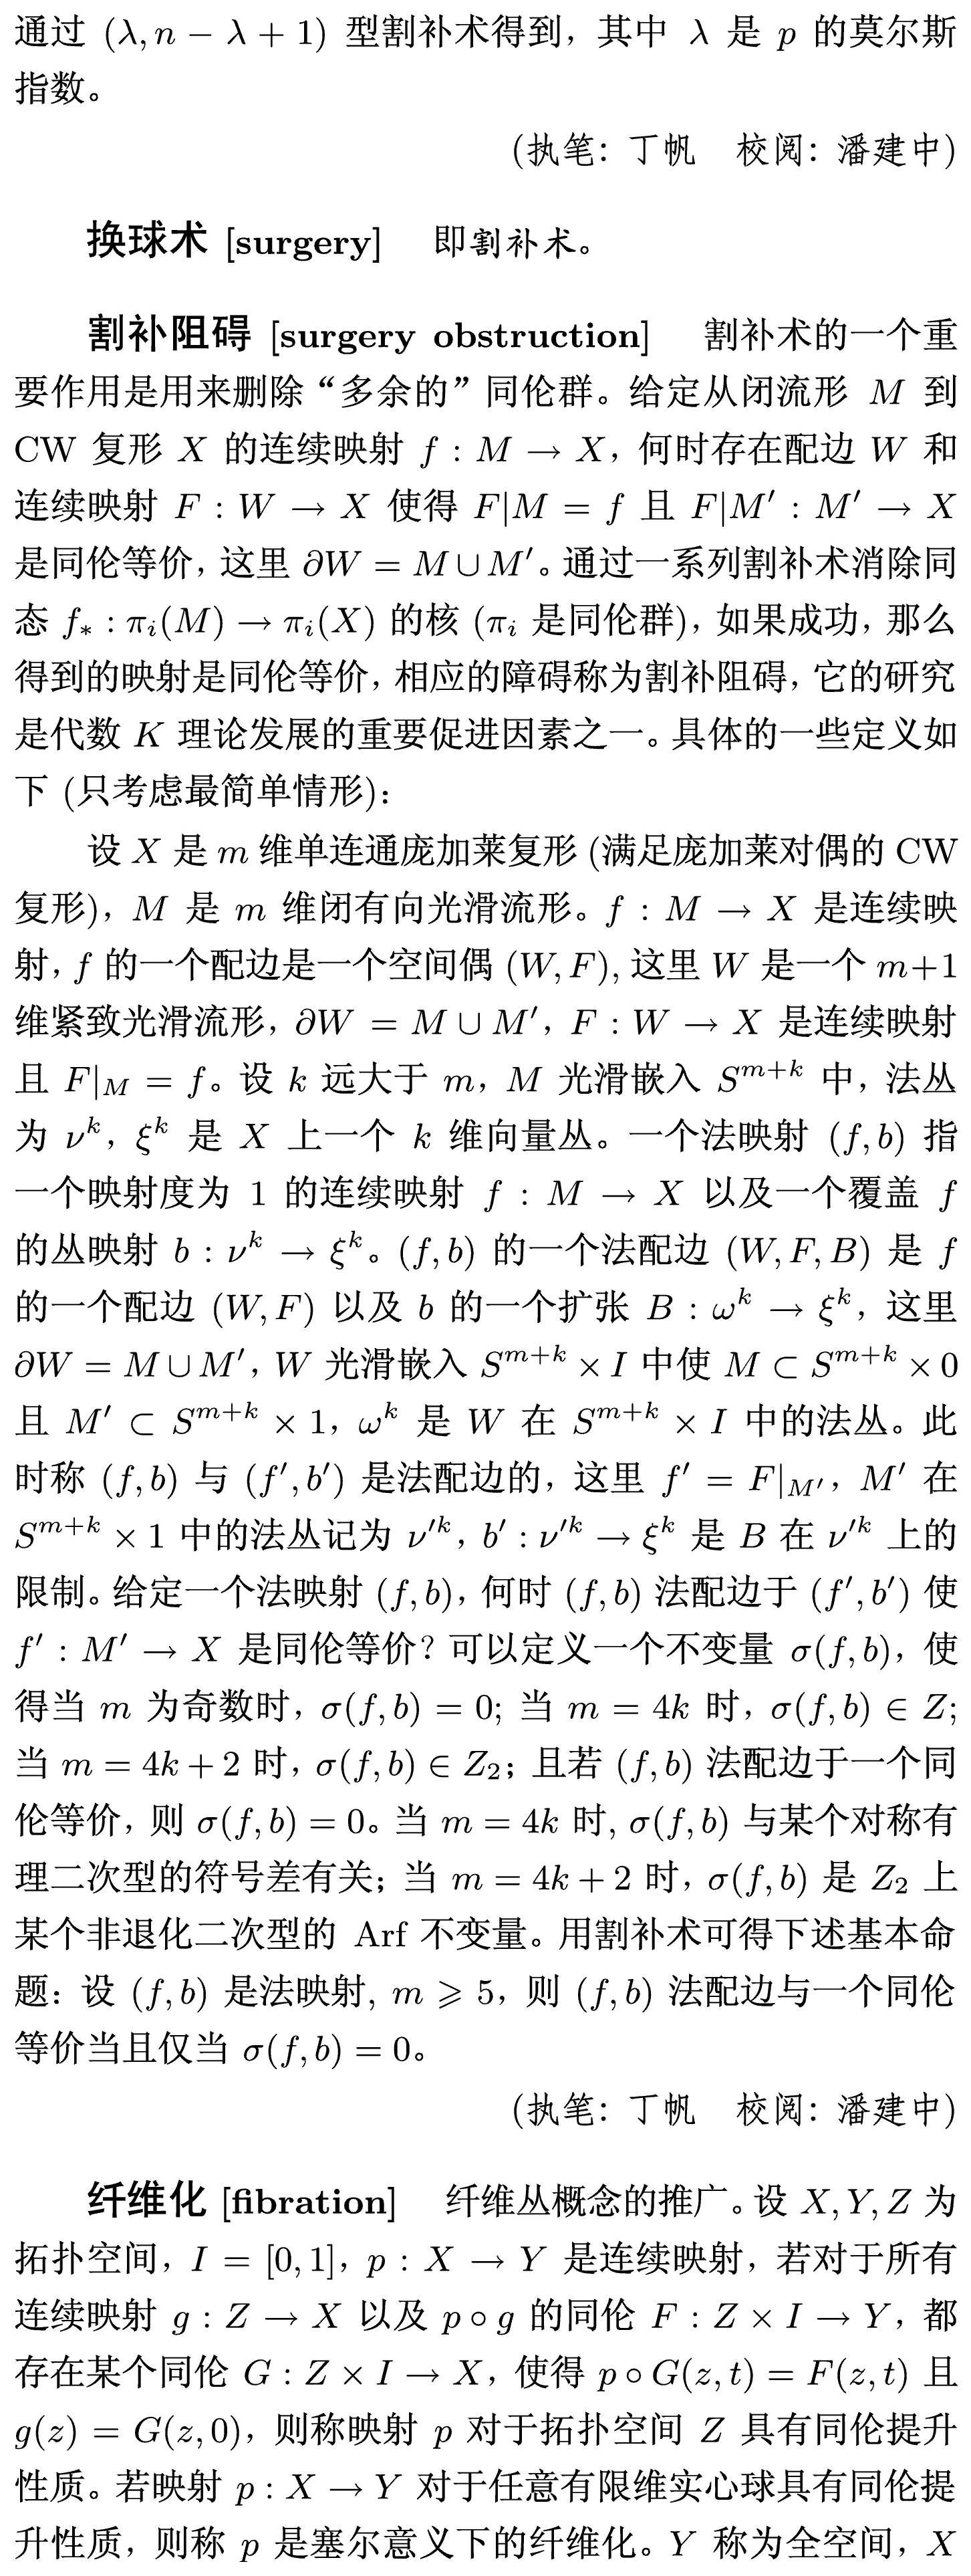 通过 (λ, n − λ + 1) 型割补术得到，其中 λ 是 p 的莫尔斯
指数。
(执笔：丁帆　校阅：潘建中)
换球术 [surgery]　即割补术。
割补阻碍 [surgery obstruction]　割补术的一个重
要作用是用来删除“多余的”同伦群。给定从闭流形 M 到
CW 复形 X 的连续映射 f : M → X，何时存在配边 W 和
连续映射 F : W → X 使得 F|M = f 且 F|M′ : M′ → X
是同伦等价，这里 ∂W = M ∪ M′。通过一系列割补术消除同
态 f∗ : πᵢ(M) → πᵢ(X) 的核 (πᵢ 是同伦群)，如果成功，那么
得到的映射是同伦等价，相应的障碍称为割补阻碍，它的研究
是代数 K 理论发展的重要促进因素之一。具体的一些定义如
下 (只考虑最简单情形)：
设 X 是 m 维单连通庞加莱复形 (满足庞加莱对偶的 CW
复形)，M 是 m 维闭有向光滑流形。f : M → X 是连续映
射，f 的一个配边是一个空间偶 (W, F), 这里 W 是一个 m+1
维紧致光滑流形，∂W = M ∪ M′，F : W → X 是连续映射
且 F|_M = f。设 k 远大于 m，M 光滑嵌入 S^{m+k} 中，法丛
为 ν^k，ξ^k 是 X 上一个 k 维向量丛。一个法映射 (f, b) 指
一个映射度为 1 的连续映射 f : M → X 以及一个覆盖 f
的丛映射 b : ν^k → ξ^k。(f, b) 的一个法配边 (W, F, B) 是 f
的一个配边 (W, F) 以及 b 的一个扩张 B : ω^k → ξ^k，这里
∂W = M ∪ M′，W 光滑嵌入 S^{m+k} × I 中使 M ⊂ S^{m+k} × 0
且 M′ ⊂ S^{m+k} × 1，ω^k 是 W 在 S^{m+k} × I 中的法丛。此
时称 (f, b) 与 (f′, b′) 是法配边的，这里 f′ = F|_{M′}，M′ 在
S^{m+k} × 1 中的法丛记为 ν′^k，b′ : ν′^k → ξ^k 是 B 在 ν′^k 上的
限制。给定一个法映射 (f, b)，何时 (f, b) 法配边于 (f′, b′) 使
f′ : M′ → X 是同伦等价？可以定义一个不变量 σ(f, b)，使
得当 m 为奇数时，σ(f, b) = 0; 当 m = 4k 时，σ(f, b) ∈ Z;
当 m = 4k + 2 时，σ(f, b) ∈ Z₂；且若 (f, b) 法配边于一个同
伦等价，则 σ(f, b) = 0。当 m = 4k 时, σ(f, b) 与某个对称有
理二次型的符号差有关；当 m = 4k + 2 时，σ(f, b) 是 Z₂ 上
某个非退化二次型的 Arf 不变量。用割补术可得下述基本命
题：设 (f, b) 是法映射, m ⩾ 5，则 (f, b) 法配边与一个同伦
等价当且仅当 σ(f, b) = 0。
(执笔：丁帆　校阅：潘建中)
纤维化 [fibration]　纤维丛概念的推广。设 X, Y, Z 为
拓扑空间，I = [0, 1]，p : X → Y 是连续映射，若对于所有
连续映射 g : Z → X 以及 p ∘ g 的同伦 F : Z × I → Y，都
存在某个同伦 G : Z × I → X，使得 p ∘ G(z, t) = F(z, t) 且
g(z) = G(z, 0)，则称映射 p 对于拓扑空间 Z 具有同伦提升
性质。若映射 p : X → Y 对于任意有限维实心球具有同伦提
升性质，则称 p 是塞尔意义下的纤维化。Y 称为全空间，X